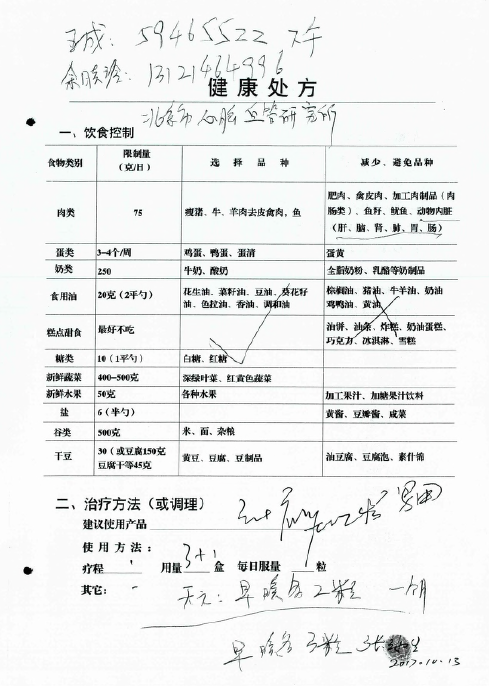 王成: 59465522
13121464996
健康处方
北京市心脑血管研究所
一、饮食控制
食物类别 限制量(克/日) 选 择 品 种 减少、避免品种
肉类 75 瘦猪、牛、羊肉去皮禽肉，鱼 肥肉、禽皮肉、加工肉制品（肉肠类）、鱼籽、鱿鱼、动物内脏（肝、脑、肾、肺、胃、肠）
蛋类 3-4个/周 鸡蛋、鸭蛋、蛋清 蛋黄
奶类 250 牛奶、酸奶 全脂奶粉、乳酪等奶制品
食用油 20克（2平勺） 花生油、菜籽油、豆油、葵花籽油、色拉油、香油、调和油 棕榈油、猪油、牛羊油、奶油鸡鸭油、黄油
糕点甜食 最好不吃 油饼、油条、炸糕、奶油蛋糕、巧克力、冰淇淋、雪糕
糖类 10（1平勺） 白糖、红糖
新鲜蔬菜 400-500克 深绿叶菜、红黄色蔬菜
新鲜水果 50克 各种水果 加工果汁、加糖果汁饮料
盐 6（半勺） 黄酱、豆瓣酱、咸菜
谷类 500克 米、面、杂粮
干豆 30（或豆腐150克豆腐干等45克 黄豆、豆腐、豆制品 油豆腐、豆腐泡、素什锦
二、治疗方法（或调理）
建议使用产品
使 用 方 法：
疗程 用量 3+1 盒 每日服量 粒
其它: 早晚各2粒 一个月
早晚各3粒
2017.10.13